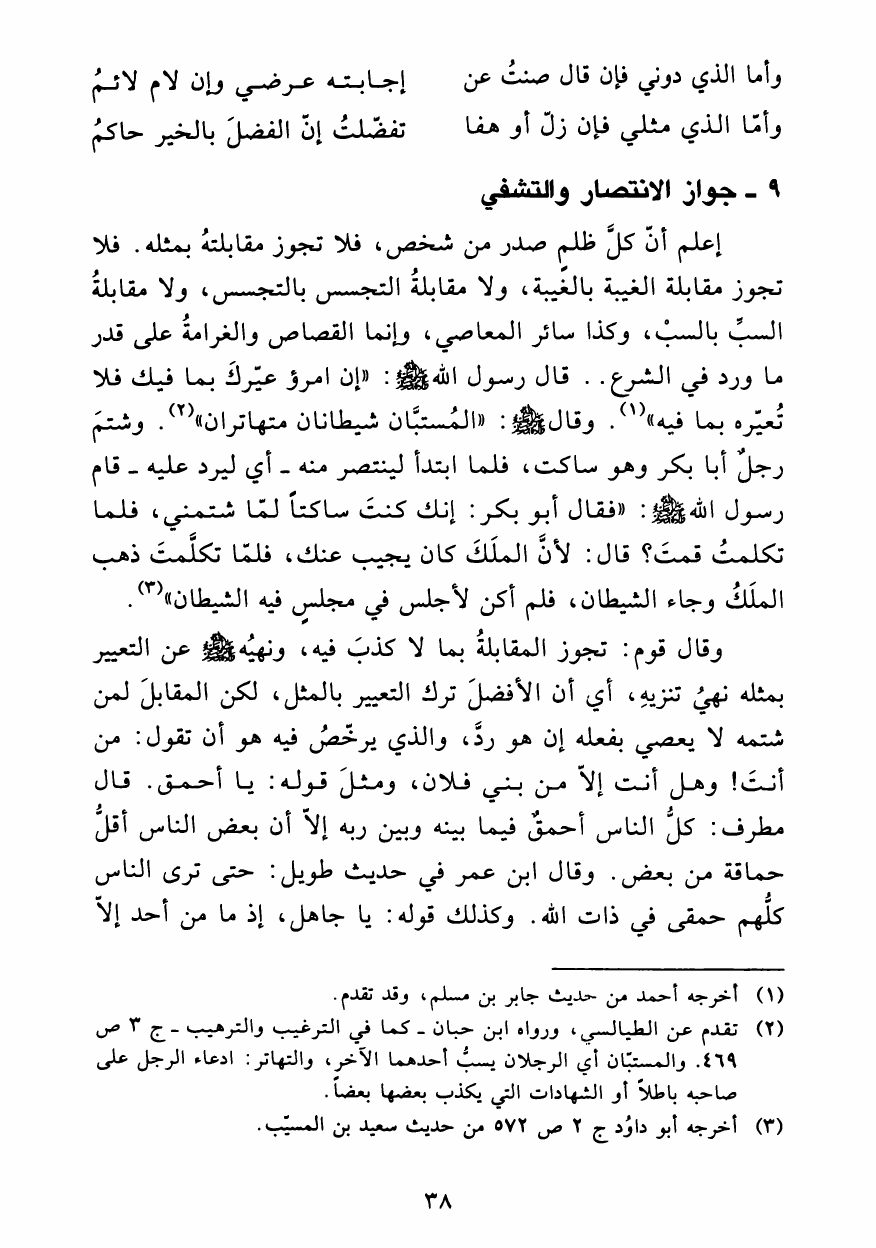 وأما الذي دوني فإن قال صنتُ عن إجـابـتـه عـرضـي وإن لام لائـمُ
وأمّا الذي مثلي فإن زلّ أو هفا تفضّلتُ إنّ الفضلَ بالخير حاكمُ
٩ ـ جواز الانتصار والتشفي
إعلم أنّ كلَّ ظلمٍ صدر من شخص، فلا تجوز مقابلتهُ بمثله. فلا
تجوز مقابلة الغيبة بالغيبة، ولا مقابلةُ التجسس بالتجسس، ولا مقابلةُ
السبِّ بالسبْ، وكذا سائر المعاصي، وإنما القصاص والغرامةُ على قدر
ما ورد في الشرع.. قال رسول اللهﷺ: «إن امرؤ عيّركَ بما فيك فلا
تُعيّره بما فيه»(١). وقالﷺ: «المُستبَّان شيطانان متهاتران»(٢). وشتمَ
رجلٌ أبا بكر وهو ساكت، فلما ابتدأ لينتصر منه ـ أي ليرد عليه ـ قام
رسول اللهﷺ: «فقال أبو بكر: إنك كنتَ ساكتاً لمّا شتمني، فلما
تكلمتُ قمتَ؟ قال: لأنَّ الملَكَ كان يجيب عنك، فلمّا تكلَّمتَ ذهب
الملَكُ وجاء الشيطان، فلم أكن لأجلس في مجلسٍ فيه الشيطان»(٣).
وقال قوم: تجوز المقابلةُ بما لا كذبَ فيه، ونهيُهﷺ عن التعيير
بمثله نهيُ تنزيهِ، أي أن الأفضلَ ترك التعيير بالمثل، لكن المقابلَ لمن
شتمه لا يعصي بفعله إن هو ردَّ، والذي يرخّصُ فيه هو أن تقول: من
أنتَ! وهـل أنـت إلاّ مـن بـنـي فـلان، ومـثـلَ قـولـه: يـا أحـمـق. قـال
مطرف: كلُّ الناس أحمقٌ فيما بينه وبين ربه إلاّ أن بعض الناس أقلُّ
حماقة من بعض. وقال ابن عمر في حديث طويل: حتى ترى الناس
كلُّهم حمقى في ذات الله. وكذلك قوله: يا جاهل، إذ ما من أحد إلاّ
(١) أخرجه أحمد من حديث جابر بن مسلم، وقد تقدم.
(٢) تقدم عن الطيالسي، ورواه ابن حبان ـ كما في الترغيب والترهيب ـ ج ٣ ص
٤٦٩. والمستبّان أي الرجلان يسبُّ أحدهما الآخر، والتهاتر: ادعاء الرجل على
صاحبه باطلاً أو الشهادات التي يكذب بعضها بعضاً.
(٣) أخرجه أبو داوُد ج ٢ ص ٥٧٢ من حديث سعيد بن المسيّب.
٣٨